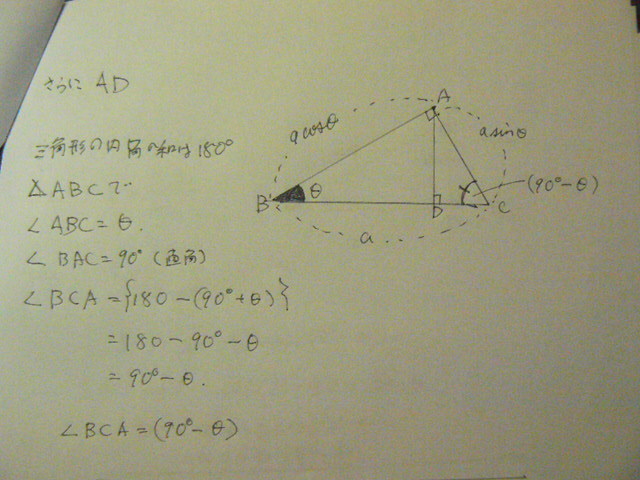 さらに AD
三角形の内角の和は180°
△ABCで
∠ABC=θ.
∠BAC=90°(直角)
∠BCA={180-(90°+θ)}
=180-90°-θ
=90°-θ.
∠BCA=(90°-θ)
A
a cosθ
a sinθ
(90°-θ)
B
θ
D
C
a